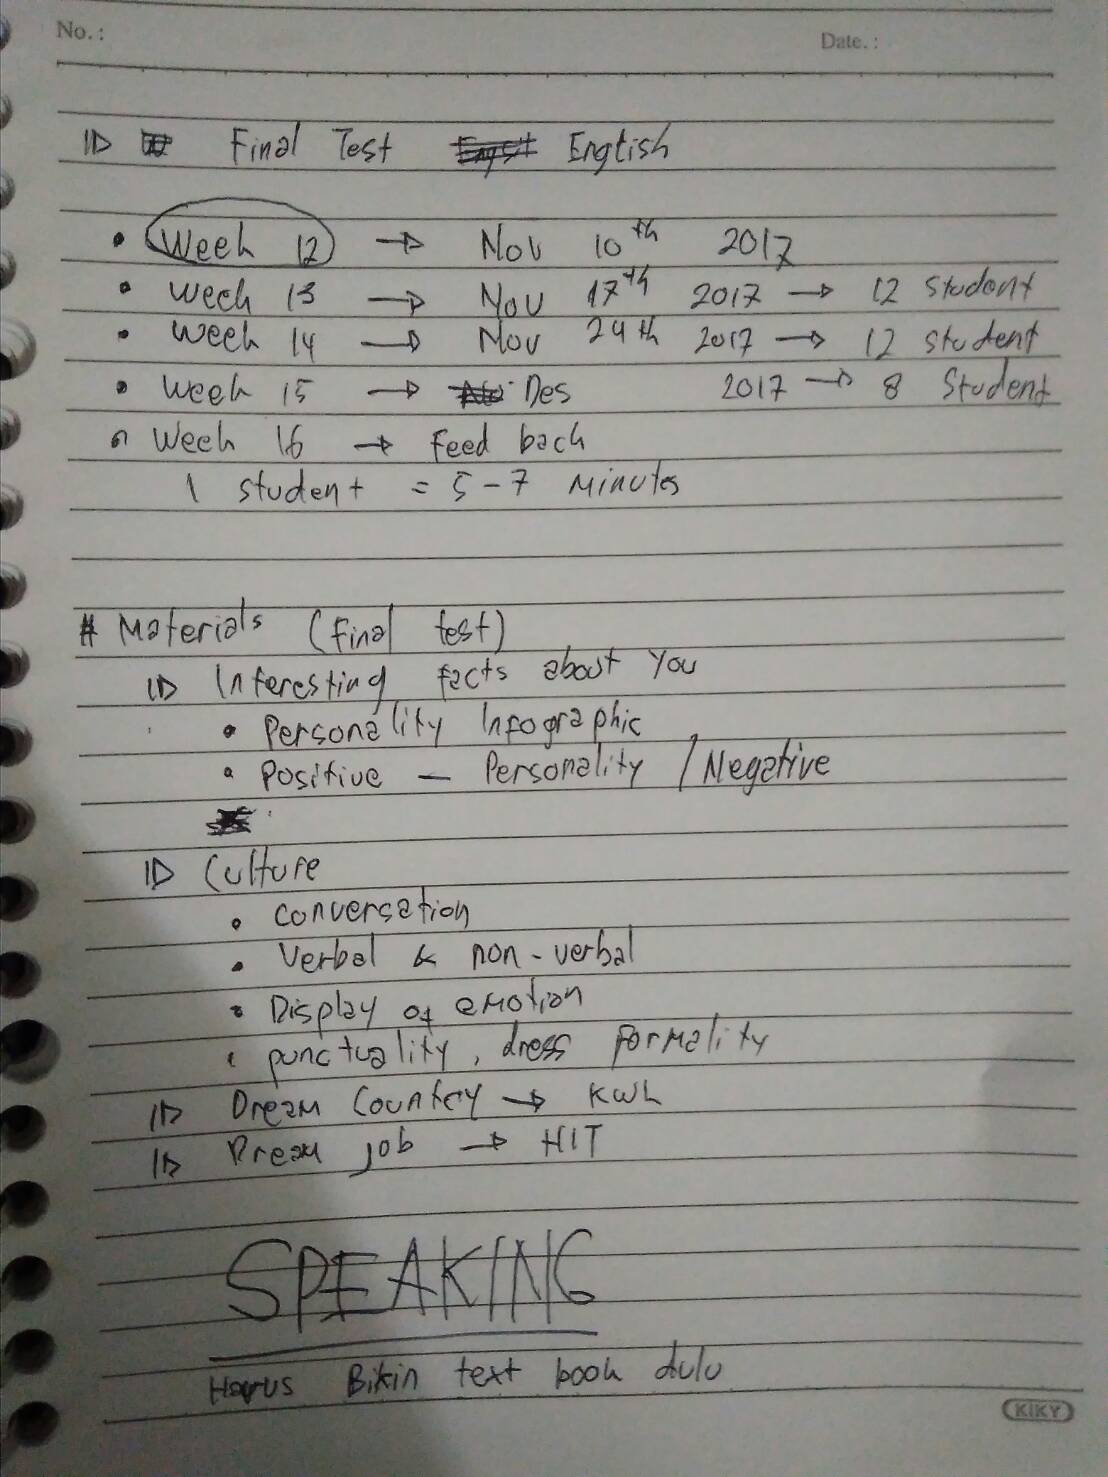 No. :
Date. :
Final Test English
• Week 12 → Nov 10th 2017
• Week 13 → Nov 17th 2017 → 12 student
• Week 14 → Nov 24th 2017 → 12 student
• Week 15 → Des 2017 → 8 Student
• Week 16 → Feed back
1 student = 5 - 7 Minutes
# Materials (final test)
Interesting facts about you
• Personality Infographic
• Positive — Personality / Negative
Culture
• Conversation
• Verbal & non-verbal
• Display of emotion
• punctuality, dress formality
Dream Country → KWL
Dream job → HIT
SPEAKING
Harus Bikin text book dulu
KIKY